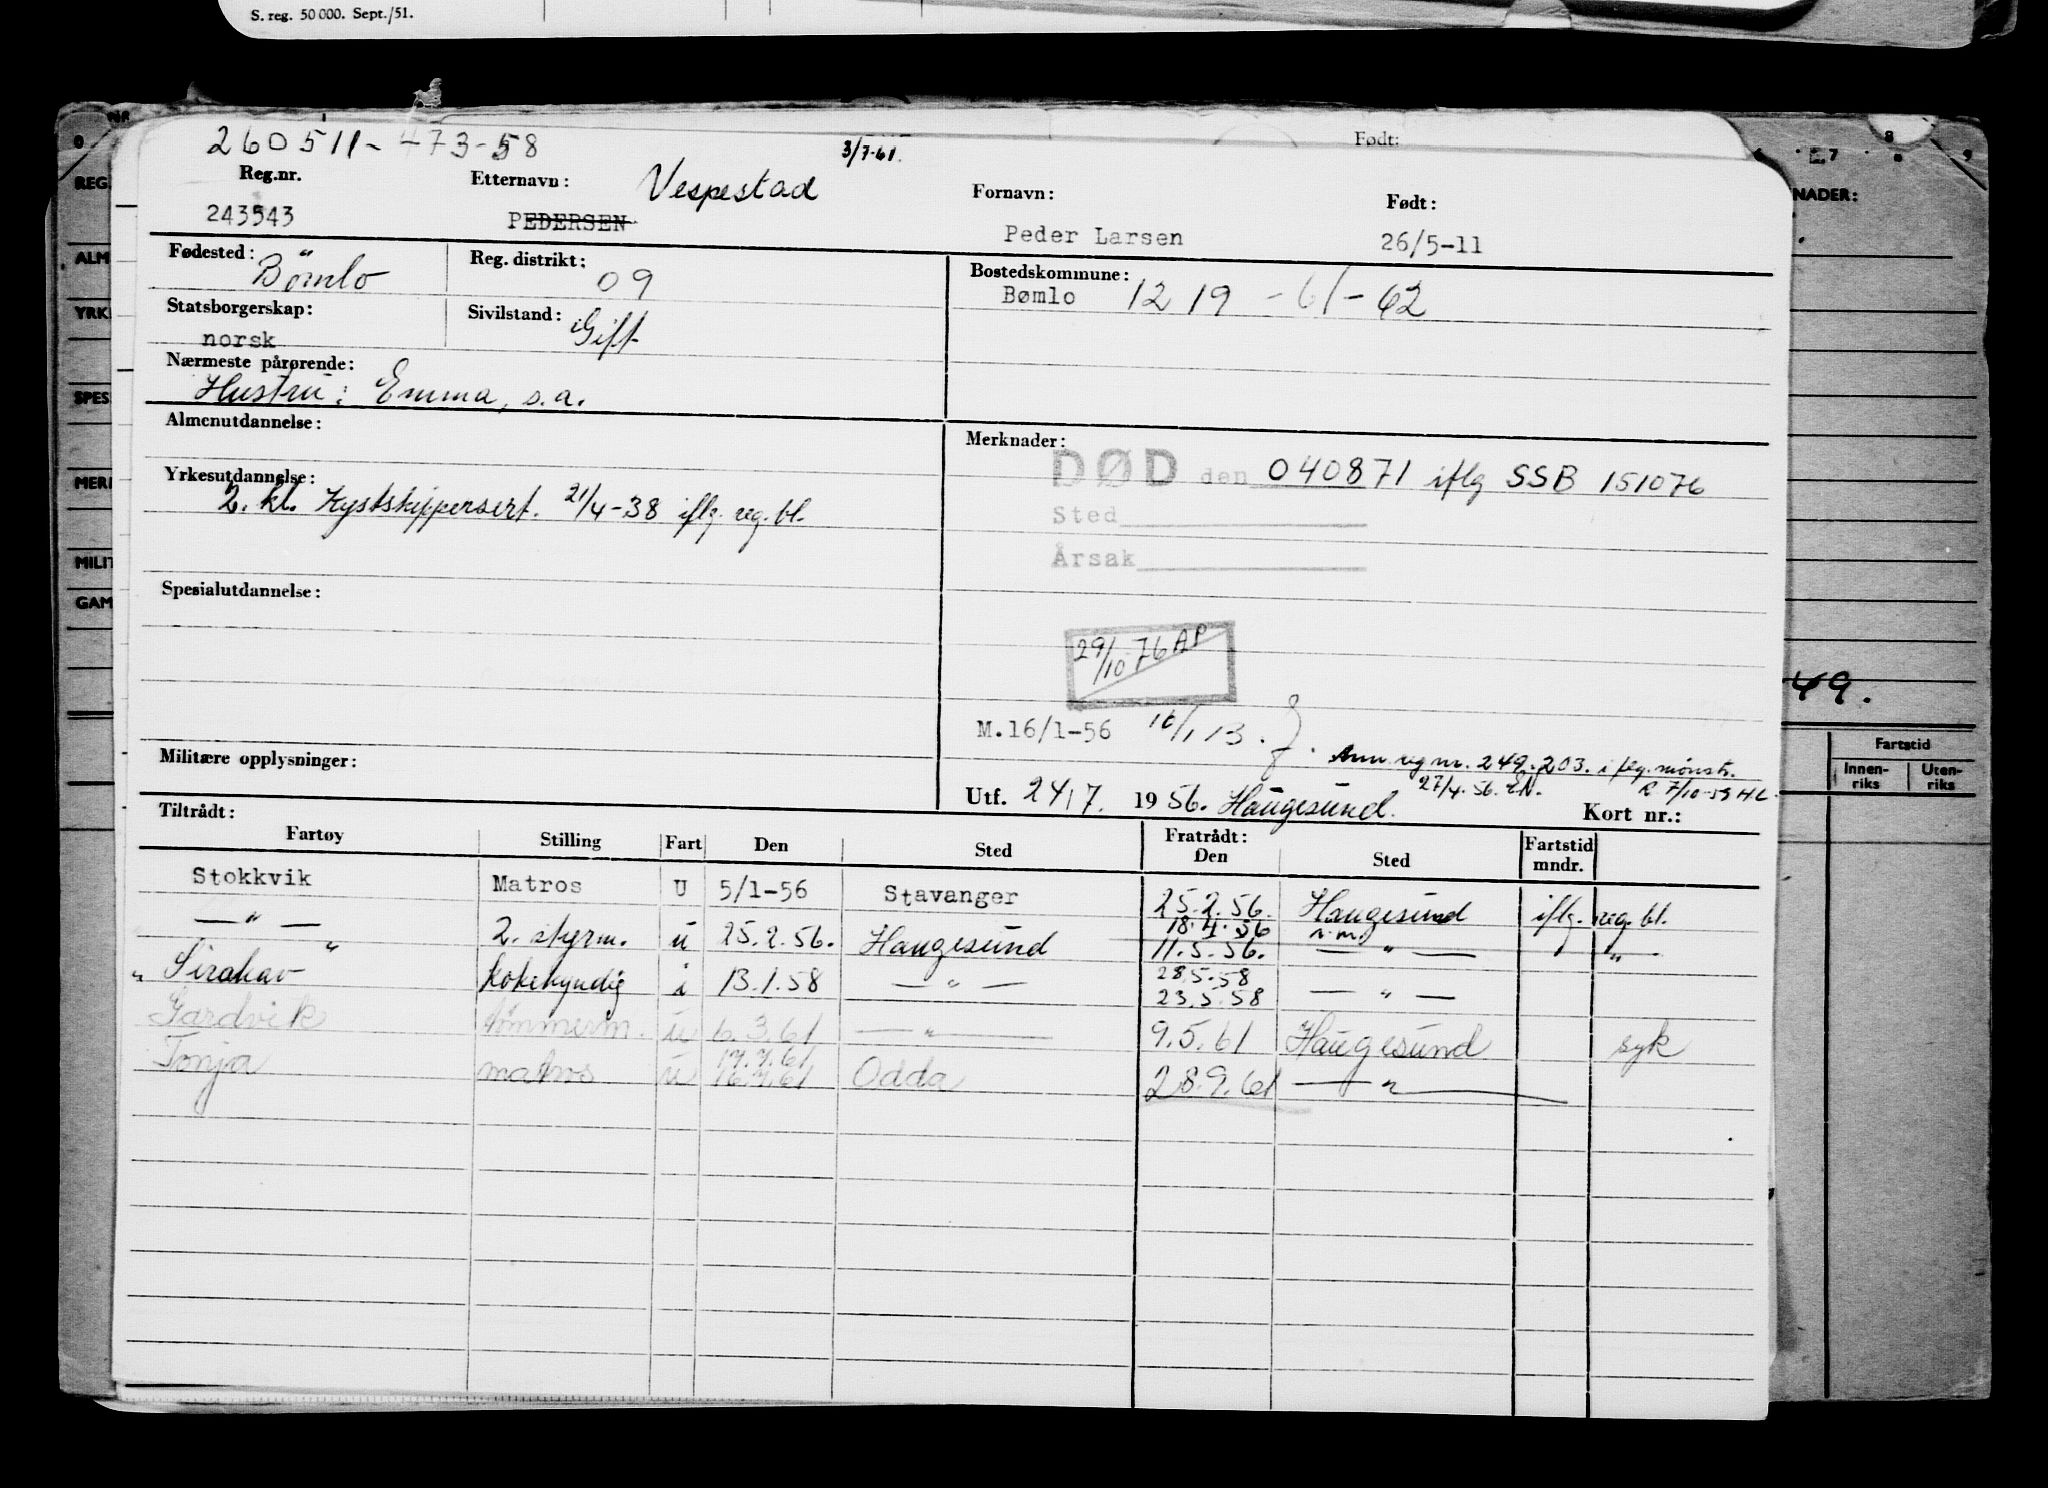 S. reg. 50 000. Sept./51.
Født:
260511-473-58
3/7-61.
Reg.nr.
Etternavn: Vespestad
Fornavn:
Født:
243543
PEDERSEN
Peder Larsen
26/5-11
Fødested: Bömlo
Reg. distrikt: 09
Bostedskommune:
Bømlo 1219 -61-62
Statsborgerskap:
norsk
Sivilstand: Gift
Nærmeste pårørende:
Hustru: Emma, s.a.
Almenutdannelse:
Merknader:
DØD den 040871 iflg SSB 151076
Yrkesutdannelse:
2. kl. Kystskippersert. 21/4-38 iflg. reg. bl.
Sted
Årsak
Spesialutdannelse:
29/10 76 AP
M.16/1-56 16/1 13.
Ann. reg nr. 249.203. iflg. mønstr.
27/4.56. EN. R. 7/10-59 HL.
Militære opplysninger:
Utf. 24/7. 1956. Haugesund.
Kort nr.:
Tiltrådt:
Fartøy
Stilling
Fart
Den
Sted
Fratrådt:
Den
Sted
Fartstid
mndr.
Stokkvik Matros U 5/1-56 Stavanger 25.2.56. Haugesund iflg. reg. bl.
— " — 2. styrm. u 25.2.56. Haugesund 18.4.56 n.m.
11.5.56. — " — "
" Sirahav kokekyndig i 13.1.58 — " — 28.5.58
23.5.58 — " —
Gardvik tömmerm. u 6.3.61 — " — 9.5.61 Haugesund syk
Tonja matros u 17.7.61
16.7.61 Odda 28.9.61 — " —
REG.
ALM
YRK
SPES
MERK
MILIT
GAM
NADER:
49.
Fartstid
Innen-
riks
Uten-
riks